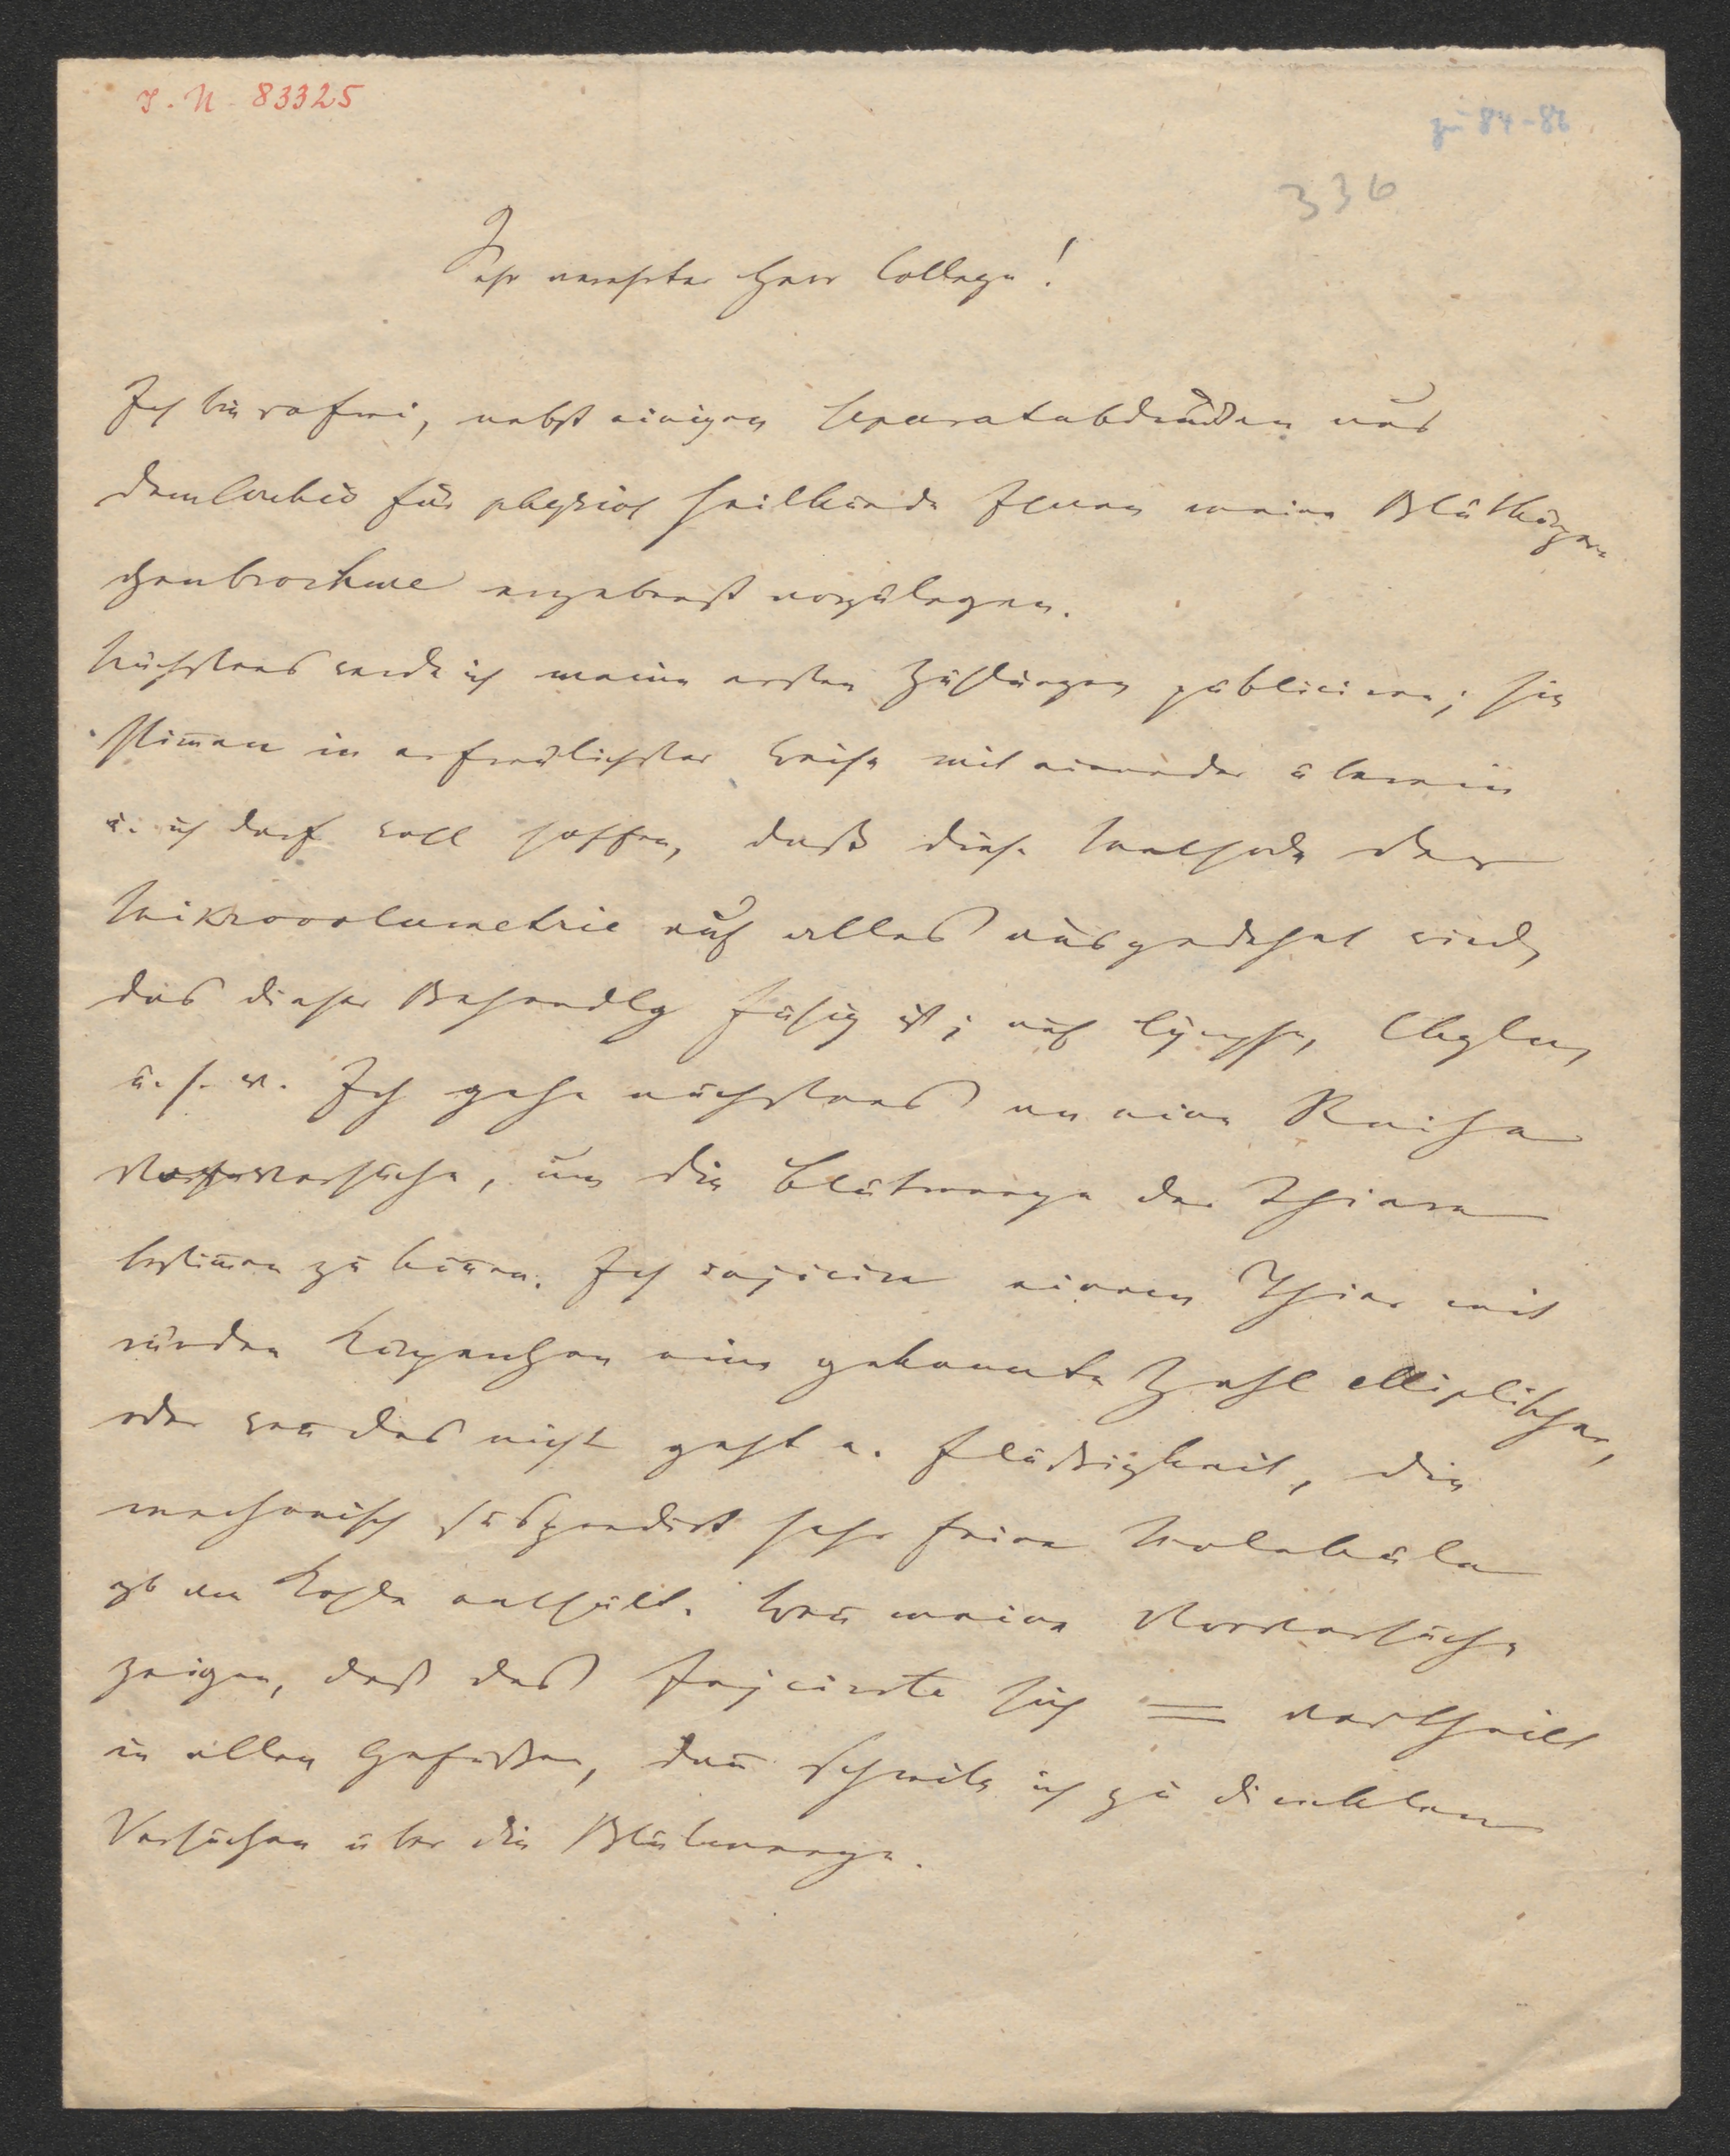 I. N. 83325
zu 84-86
336
Sehr verehrter Herr College!
Ich bin so frei, nebst einigen Separatabdrücken aus
dem Archiv für physiol Heilkunde Ihnen meine Blutkörper-
chenbrochure ergebenst vorzulegen.
Nächstens werde ich meine ersten Zählungen publiciren; sie
stim̄en in erfreulichster Weise mit einander überein
u. ich darf woll hoffen, daß diese Methode der
Mikrovolumetrie auf alles ausgedehnt wird,
das dieser Behandlg fähig ist; auf Lymphe, Chylus,
u. s. w. Ich gehe nächstens an eine Reihe
Vorversuche, um die Blutmenge der Thiere
bestim̄en zu kön̄en. Ich injicire einem Thier mit
runden Körperchen eine gekannte Zahl elliptischer,
oder wen̄ das nicht geht e. Flüssigkeit, die
mechanisch suspendirt sehr feine Moleküle
zb von Kohle enthält. Wen̄ meine Vorversuche
zeigen, daß das Injicirte sich = vertheilt
in allen Gefässen, dan̄ schreite ich zu direkten
Versuchen über die Blutmenge.